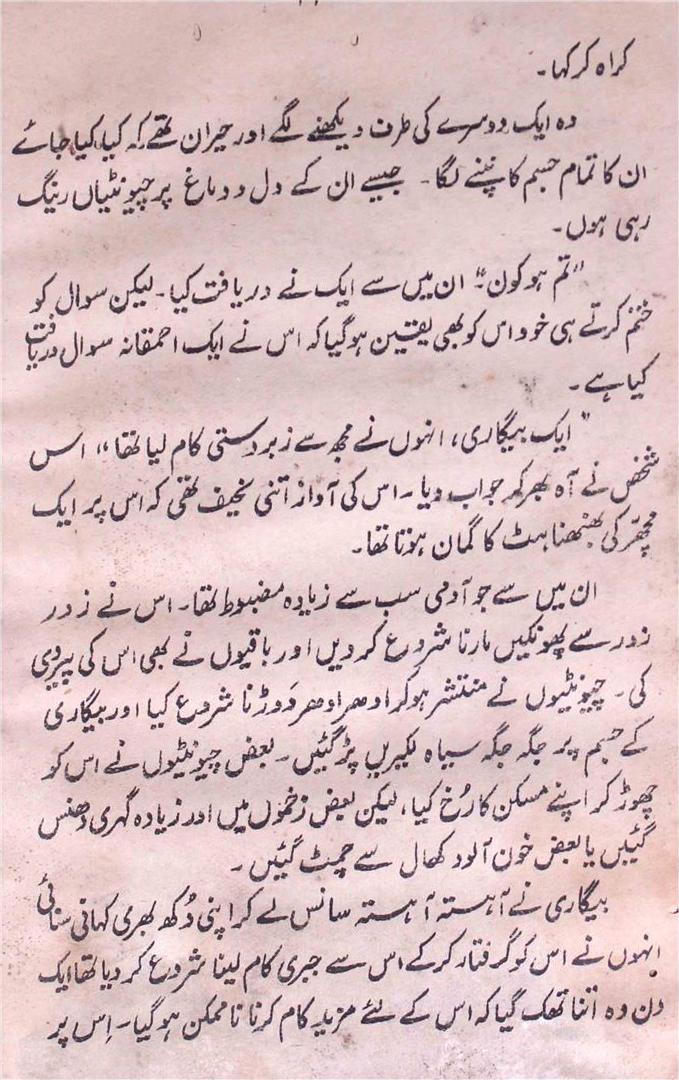 کراہ کر کہا۔
وہ ایک دوسرے کی طرف دیکھنے لگے اور حیران تھے کہ کیا کیا جائے
ان کا تمام جسم کانپنے لگا۔ جیسے ان کے دل و دماغ پر چیونٹیاں رینگ
رہی ہوں۔
"تم ہو کون؟" ان میں سے ایک نے دریافت کیا۔ لیکن سوال کو
ختم کرتے ہی خود اس کو بھی یقین ہو گیا کہ اس نے ایک احمقانہ سوال دریافت
کیا ہے۔
"ایک بیگاری، انہوں نے مجھ سے زبردستی کام لیا تھا" اس
شخص نے آہ بھر کر جواب دیا۔ اس کی آواز اتنی نحیف تھی کہ اس پر ایک
مچھر کی بھنبھناہٹ کا گمان ہوتا تھا۔
ان میں سے جو آدمی سب سے زیادہ مضبوط تھا۔ اس نے زور
زور سے پھونکیں مارنا شروع کر دیں اور باقیوں نے بھی اس کی پیروی
کی۔ چیونٹیوں نے منتشر ہو کر ادھر ادھر دَوڑنا شروع کیا اور بیگاری
کے جسم پر جگہ جگہ سیاہ لکیریں پڑ گئیں۔ بعض چیونٹیوں نے اس کو
چھوڑ کر اپنے مسکن کا رُخ کیا، لیکن بعض زخموں میں اور زیادہ گہری دھنس
گئیں یا بعض خون آلود کھال سے چمٹ گئیں۔
بیگاری نے آہستہ آہستہ سانس لے کر اپنی دُکھ بھری کہانی سنائی
انہوں نے اس کو گرفتار کر کے اس سے جبری کام لینا شروع کر دیا تھا ایک
دن وہ اتنا تھک گیا کہ اس کے لئے مزید کام کرنا ناممکن ہو گیا۔ اِس پر